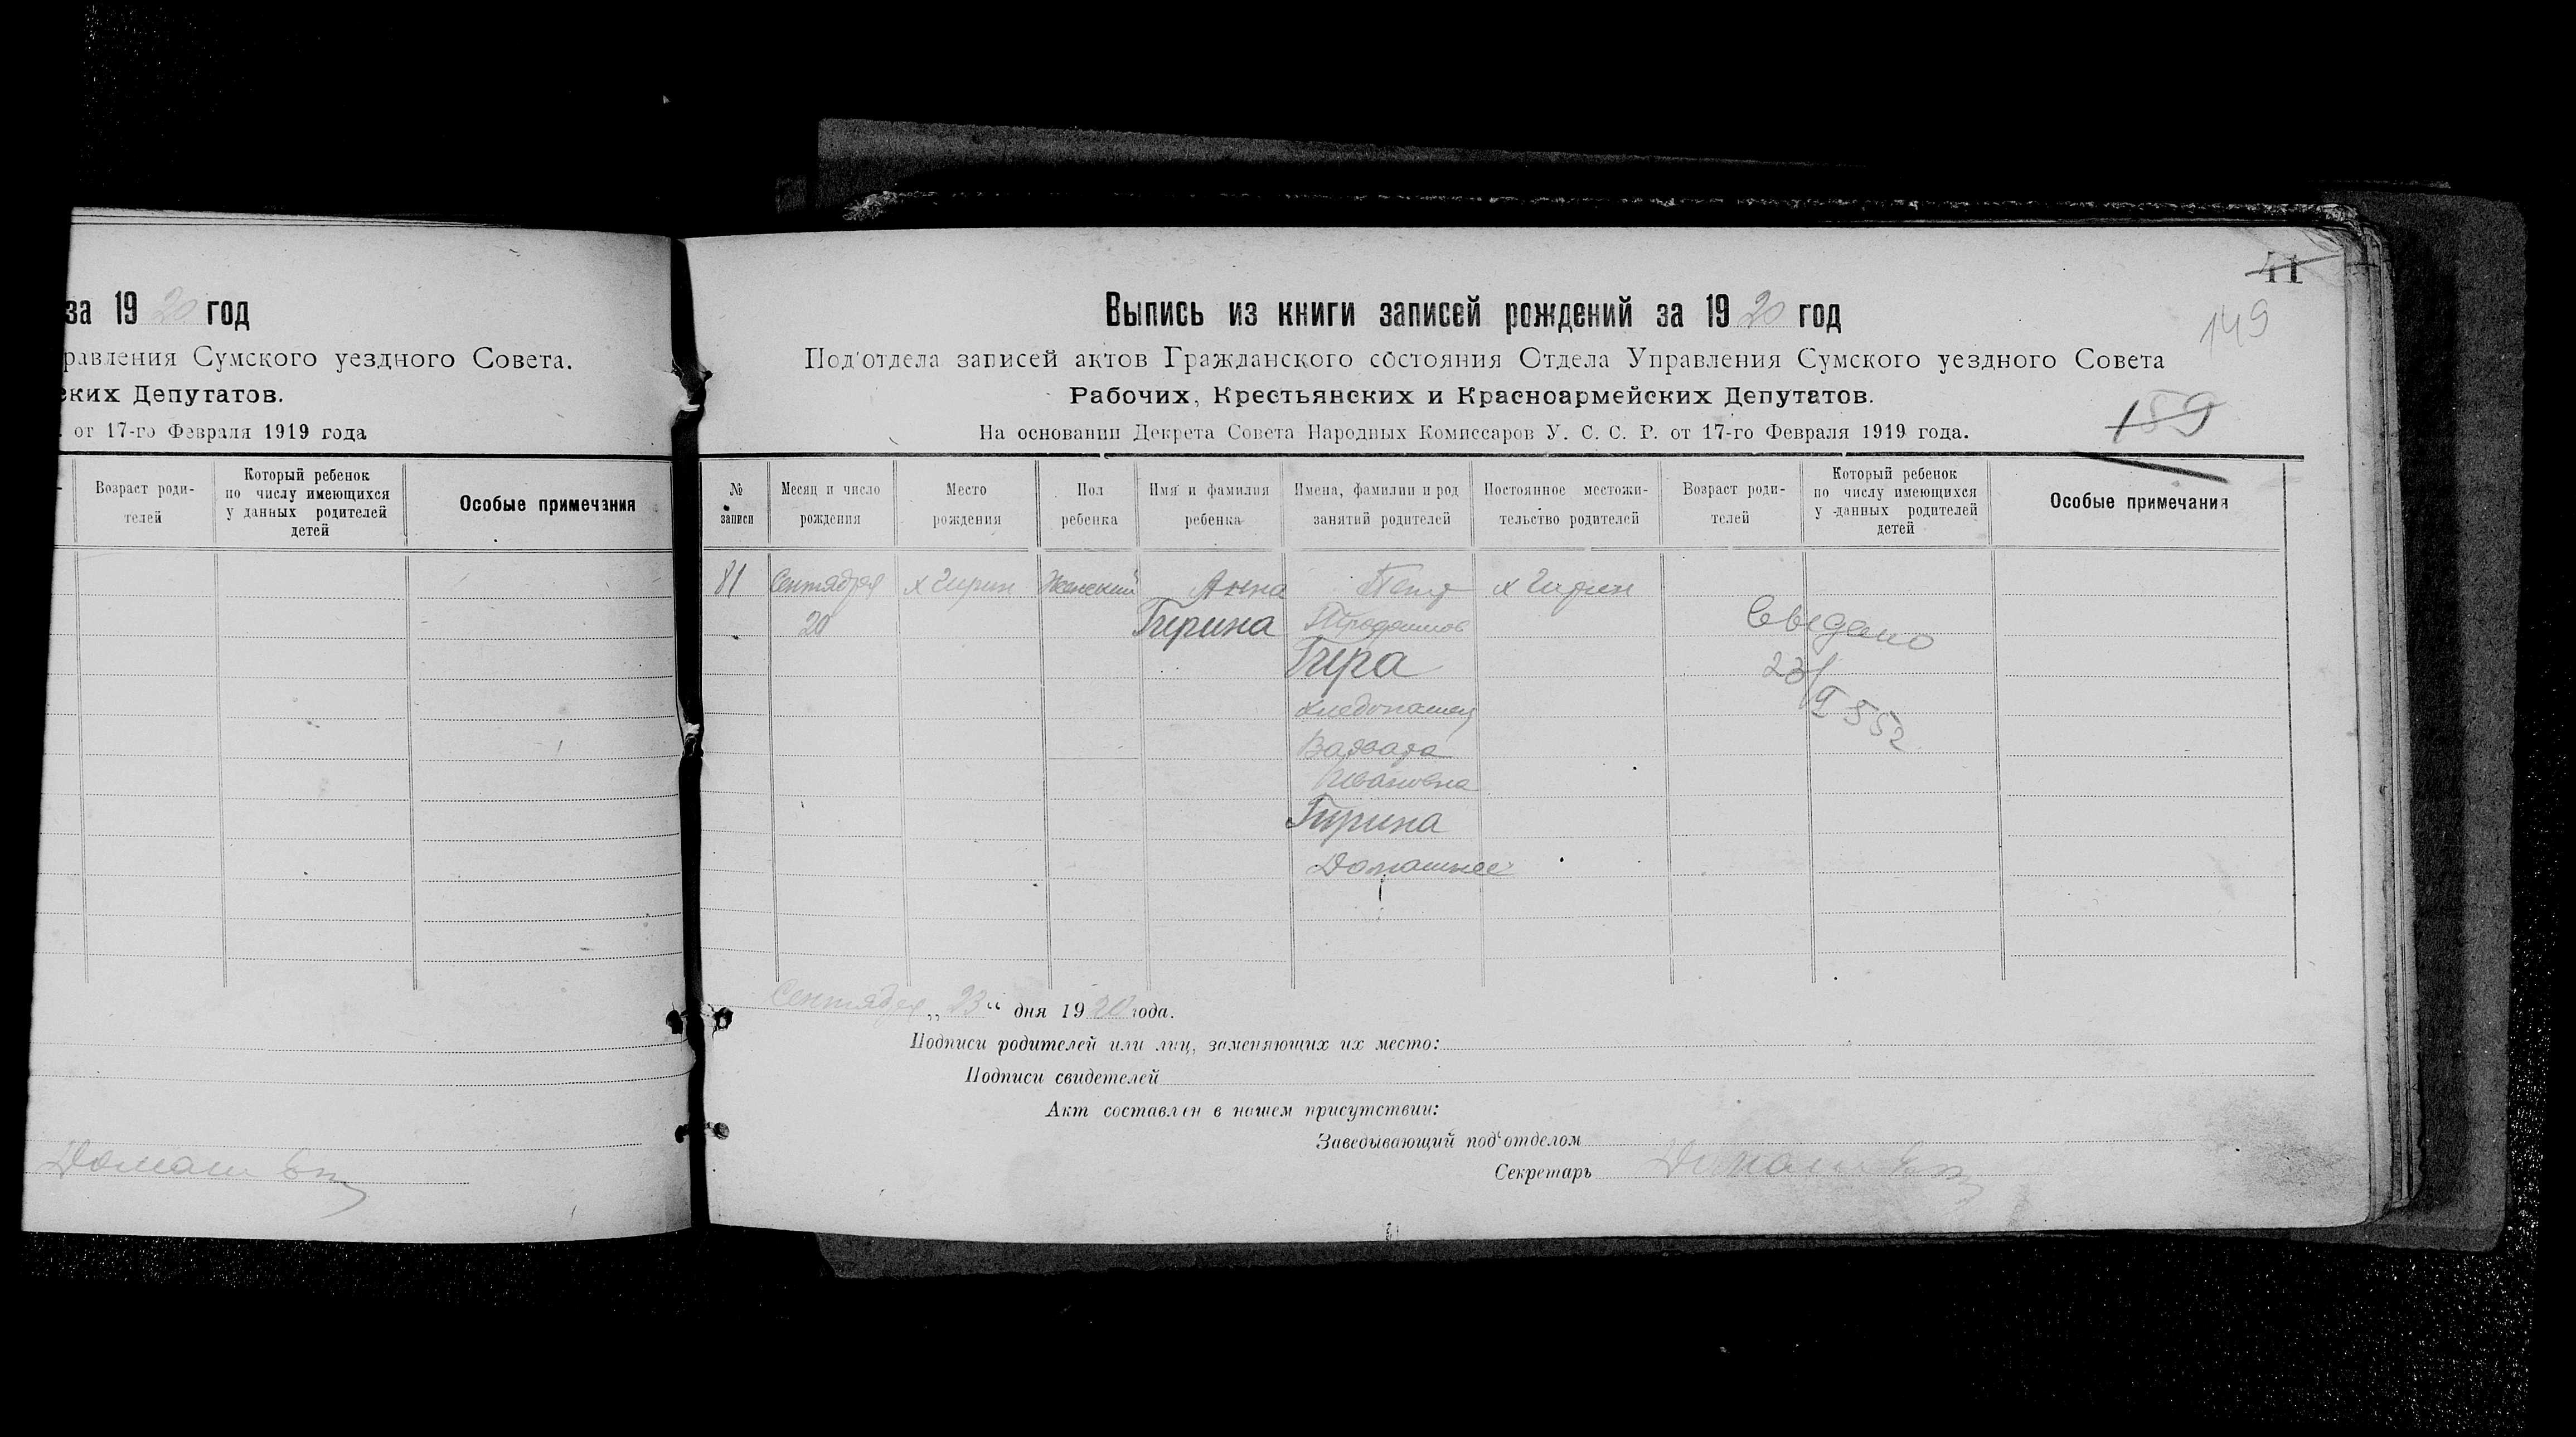 за 1920 год
равления Сумского уездного Совета.
ских Депутатов.
от 17-го Февраля 1919 года
Возраст роди-
телей
Который ребенок
по числу имеющихся
у данных родителей
детей
Особые примечания
41
149
159
Выпись из книги записей рождений за 1920 год
Под'отдела записей актов Гражданского состояния Отдела Управления Сумского уездного Совета
Рабочих, Крестьянских и Красноармейских Депутатов.
На основании Декрета Совета Народных Комиссаров У. С. С. Р. от 17-го Февраля 1919 года.
№
записи
Месяц и число
рождения
Место
рождения
Пол
ребенка
Имя и фамилия
ребенка
Имена, фамилии и род
занятий родителей
Постоянное местожи-
тельство родителей
Возраст роди-
телей
Который ребенок
по числу имеющихся
у данных родителей
детей
Особые примечания
81 Сентября х Гирин Женский Анна Петр х Гирин
20 Гирина
Гира
хлебопашец
Варвара
Ивановна
Гирина
Домашнее
Сентября „23“ дня 1920 года.
Подписи родителей или лиц, заменяющих их место:
Подписи свидетелей
Акт составлен в нашем присутствии:
Заведывающий под'отделом
Секретарь